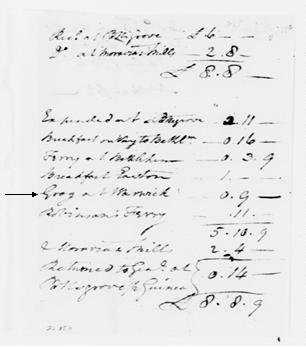 Rec'd at Pottsgrove £6 —
Do at Moravian Mills 2.8 —
£ 8.8 —
Expended at Pottsgrove 2.11 —
Breakfast on Way to Bethlm. 0.16 —
Ferry at Bethlehem 0.3.9
Breakfast Easton 1. —
Grog at Warwick 0.9 —
Robinson's Ferry .11. —
5.10.9
& Moravian Mills 2.4 —
Returned to Genl. at
Pottsgrove 0.14 —
£ 8.8.9